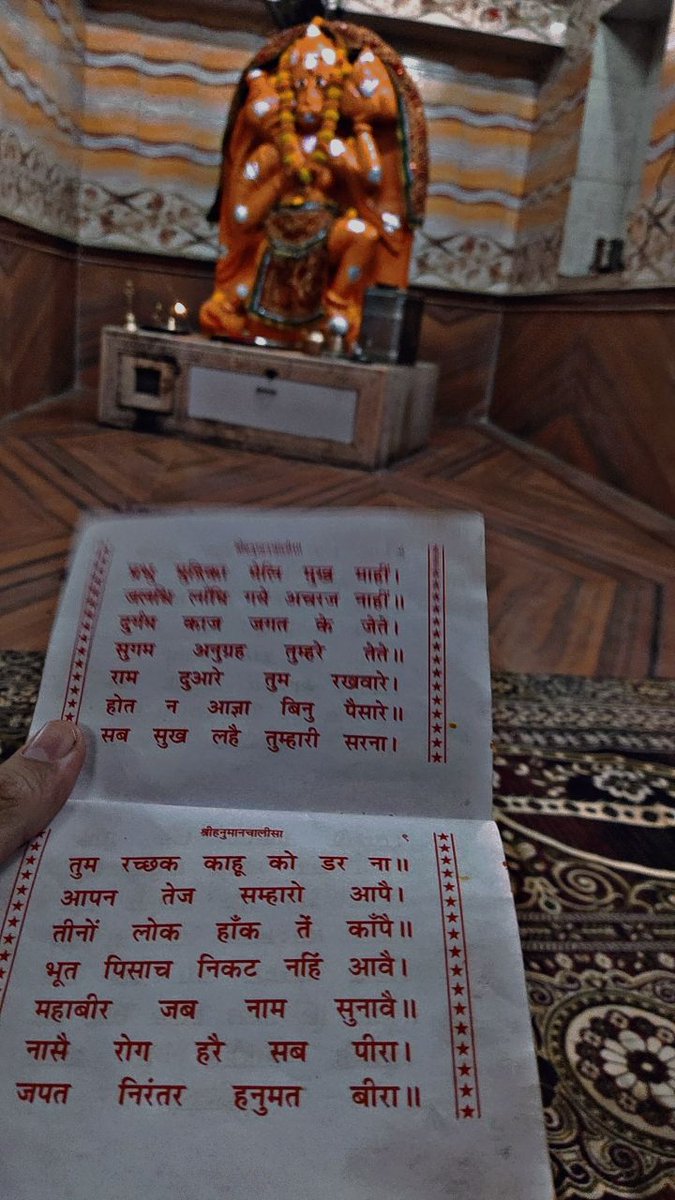 श्रीहनुमानचालीसा
प्रभु मुद्रिका मेलि मुख माहीं।
जलधि लाँघि गये अचरज नाहीं॥
दुर्गम काज जगत के जेते।
सुगम अनुग्रह तुम्हरे तेते॥
राम दुआरे तुम रखवारे।
होत न आज्ञा बिनु पैसारे॥
सब सुख लहै तुम्हारी सरना।
श्रीहनुमानचालीसा ९
तुम रच्छक काहू को डर ना॥
आपन तेज सम्हारो आपै।
तीनों लोक हाँक तें काँपै॥
भूत पिसाच निकट नहिं आवै।
महाबीर जब नाम सुनावै॥
नासै रोग हरै सब पीरा।
जपत निरंतर हनुमत बीरा॥